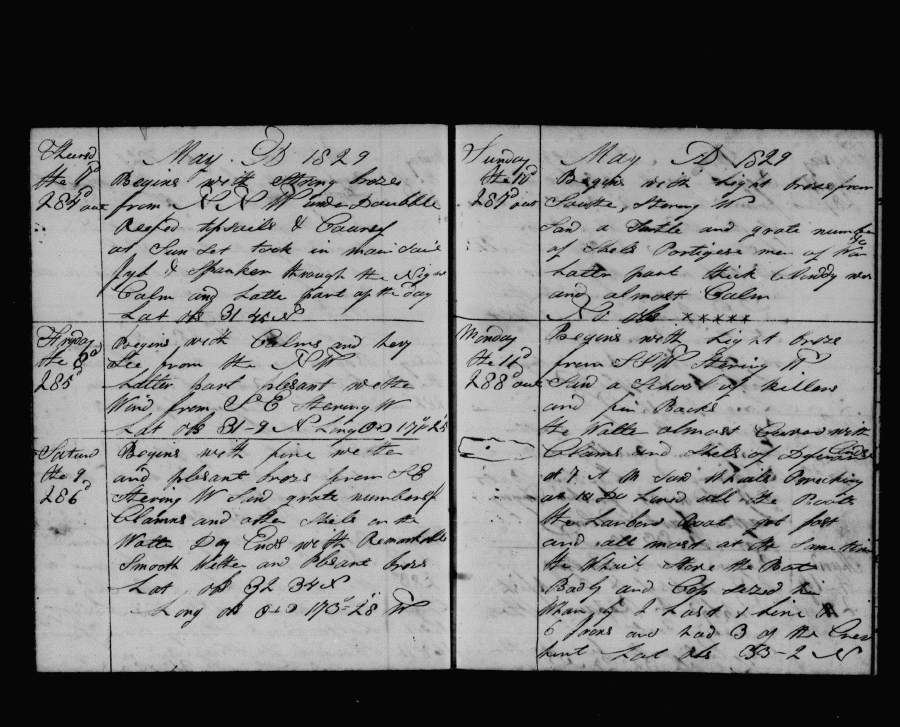 Thursd
the 7d
284d out
May. AD 1829
Begins with strong brezes
from N N W under Doubble
Reefed topsails & Courses
at Sun Set took in main Sail
Jyb & Spanker through the Night
Calm and Latte part of the Day
Lat ob 31 45 N
Fryday
the 8d
285d
Begins with Calms and hevy
See from the N W
Latter part plesant wethe
Wind from S E Stering W
Lat ob 31-9 N Long
Saturd
the 9
286d
Begins with fine wethe
and plesant brezes from S E
Stering W Sand grate numbers of
Clamns and othe Shels on the
Watte Day Ends with Remarkable
Smooth Wathe and Plesant brezes
Lat ob 32 34 N
Long ob 173-28 W
Sunday
the 10d
287d out
May AD 1829
Begins with Light breze from
Stering W
Sand a Turtle and grate number
of Shels Portigese men of War
Latter part thick Clouddy
and almost Calm
No ob xxxxx
Monday
the 11d
288d out
Begins with Light breze
from S S W Stering W
Sand a School of Killers
and fin Backs
the Watte almost Covered with
Clams and Shels of Deferent
at 7 A M Sand Whails
at 10 Do Lowed all the Boats
the Larbord Boat got fast
and all most at the Same time
the Whail Stove the Boat
Badly and
Lost 1 Line
6 Irons and had 3 of the
Lat ob 33-2 N